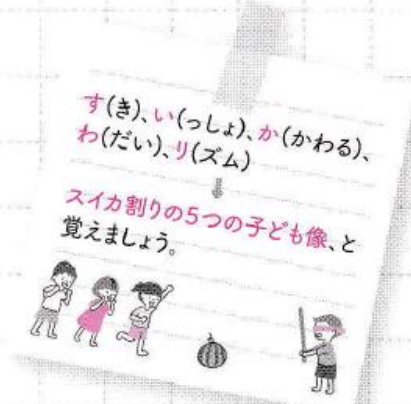 す(き)、い(っしょ)、か(かわる)、
わ(だい)、リ(ズム)
⇓
スイカ割りの5つの子ども像、と
覚えましょう。